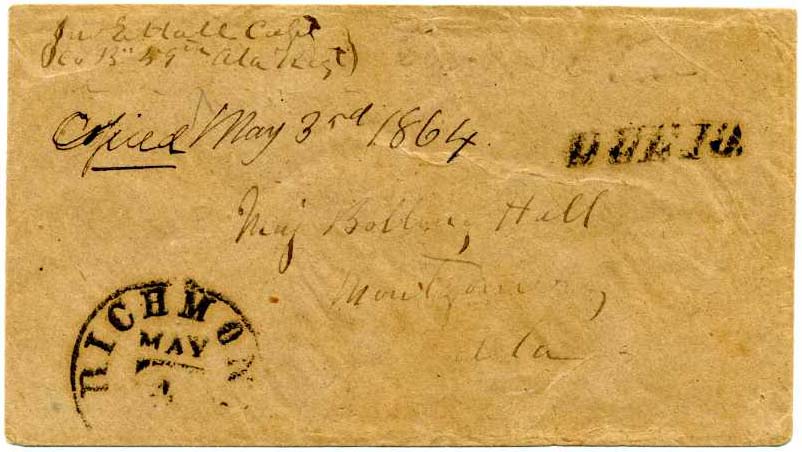 Jno E Hall Capt
(Co B" 59th Ala Regt)
Copied May 3rd 1864.
DUE 10.
Maj Bolling Hall
Montgomery
Ala
RICHMON
MAY